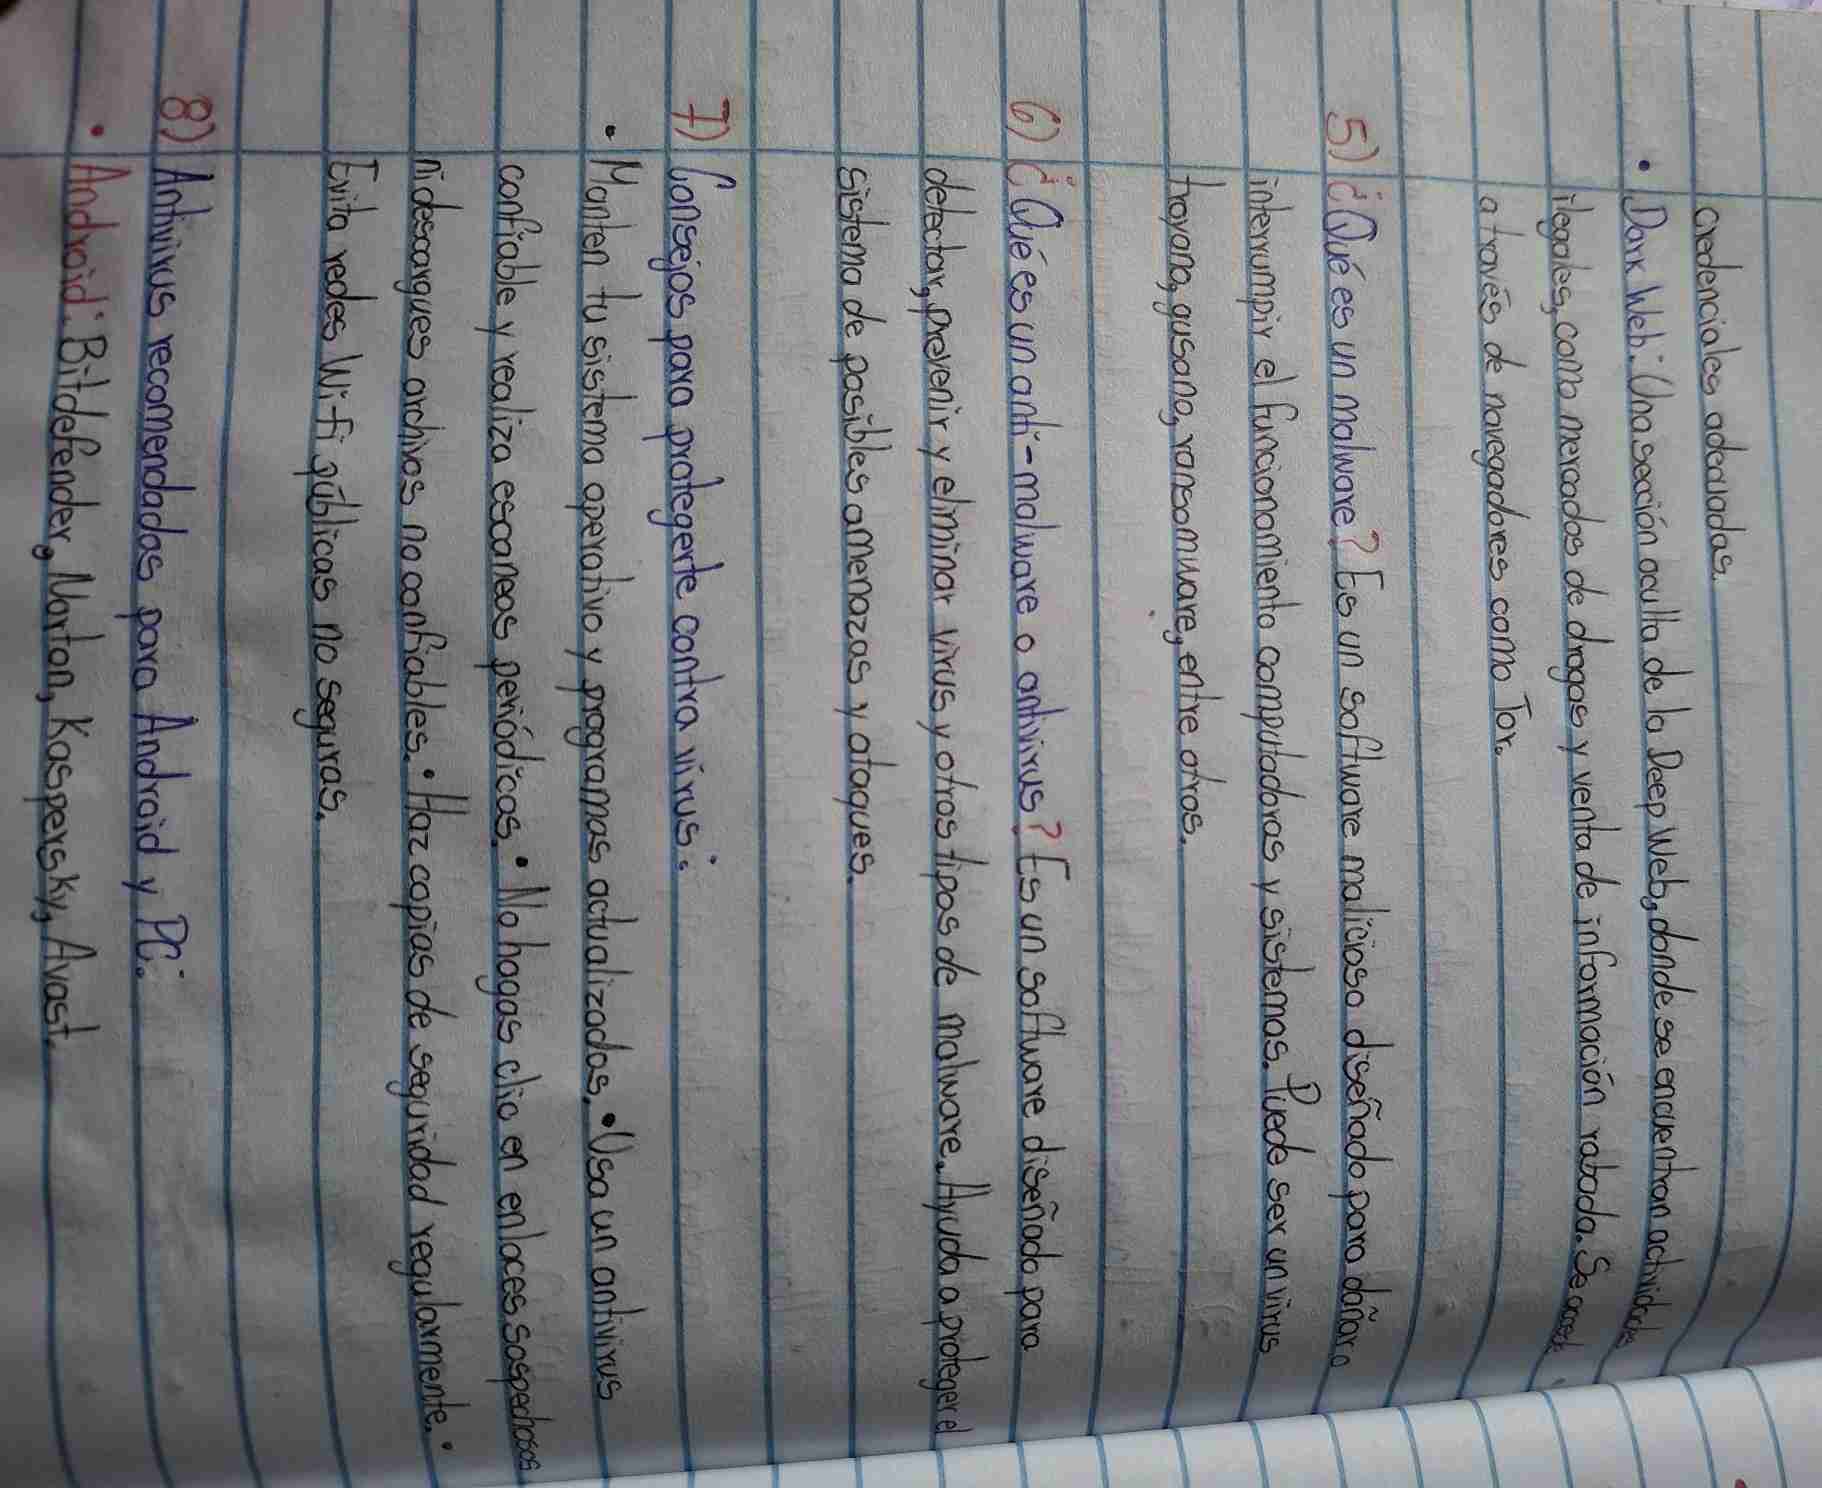 credenciales adecuadas.
• Dark Web: Una sección oculta de la Deep Web, donde se encuentran actividades
ilegales, como mercados de drogas y venta de información robada. Se accede
a través de navegadores como Tor.
5) ¿Qué es un malware? Es un software malicioso diseñado para dañar o
interrumpir el funcionamiento computadoras y sistemas. Puede ser un virus
troyano, gusano, ransomware, entre otros.
6) ¿Qué es un anti-malware o antivirus? Es un software diseñado para
detectar, prevenir y eliminar virus y otros tipos de malware. Ayuda a proteger el
sistema de posibles amenazas y ataques.
7) Consejos para protegerte contra virus:
• Manten tu sistema operativo y programas actualizados. • Usa un antivirus
confiable y realiza escaneos periódicos. • No hagas clic en enlaces sospechosos
ni descargues archivos no confiables. • Haz copias de seguridad regularmente. •
Evita redes Wi-Fi públicas no seguras.
8) Antivirus recomendados para Android y PC:
• Android: Bitdefender, Norton, Kaspersky, Avast.